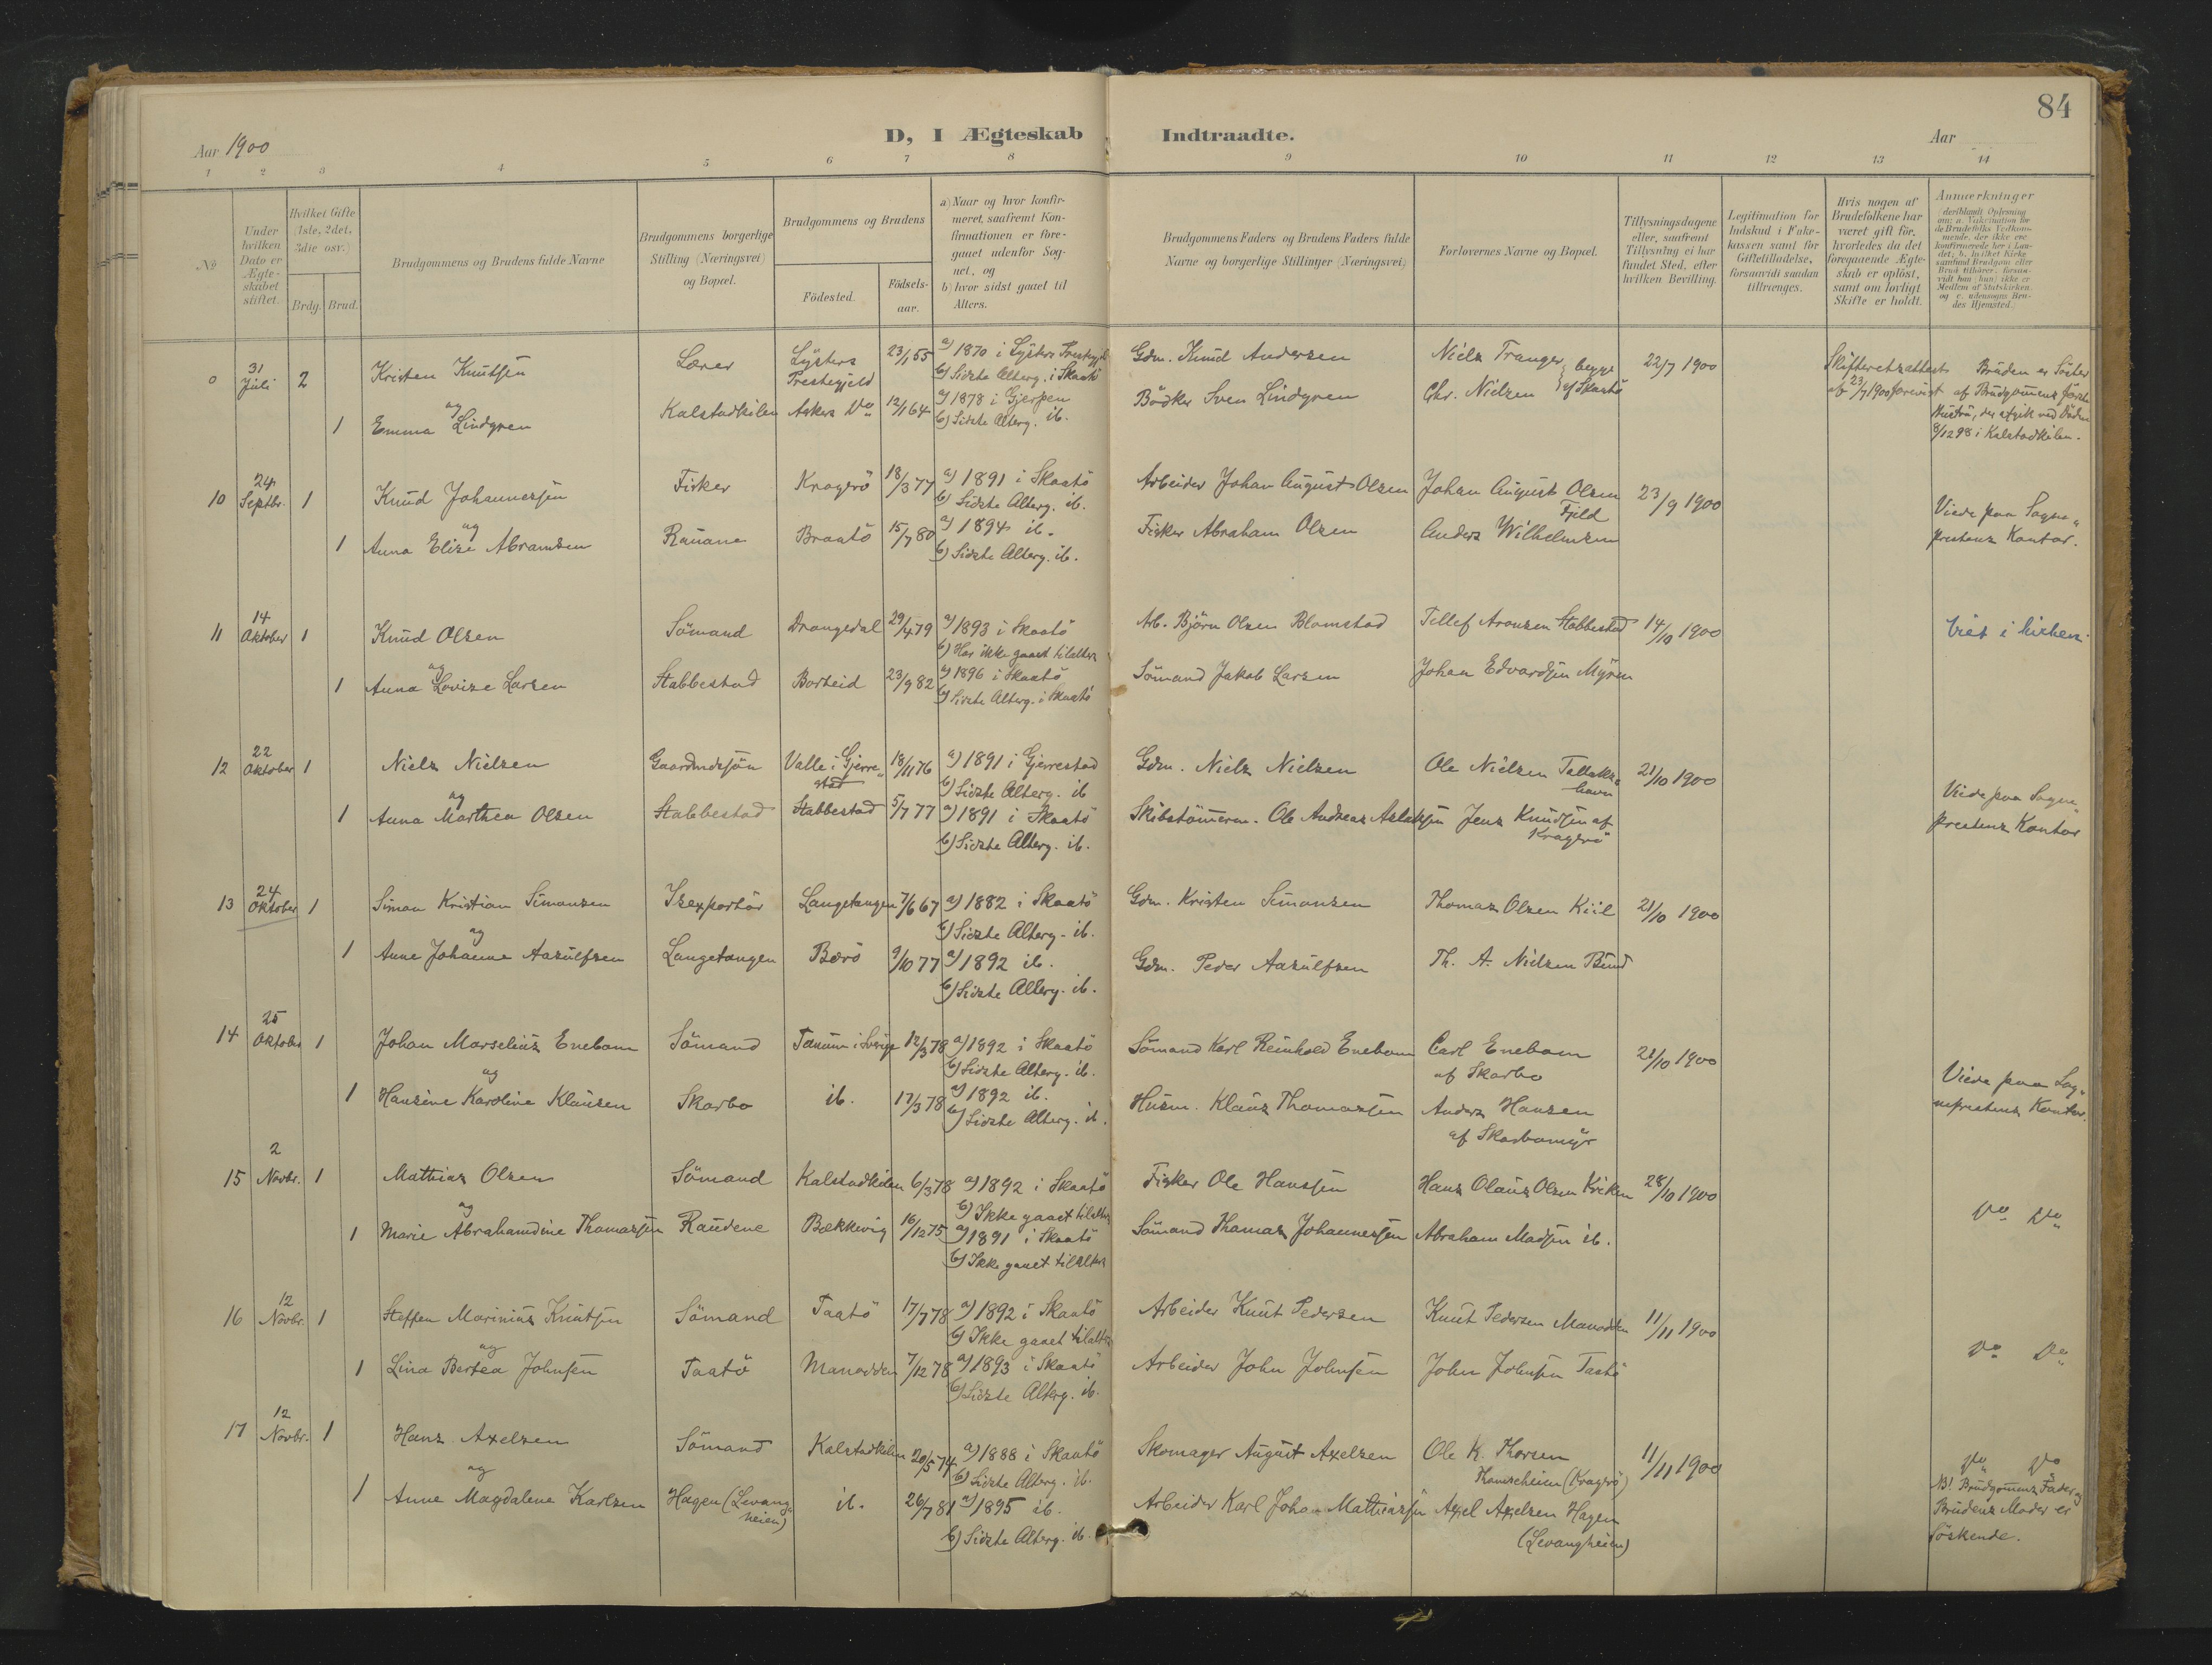 84
D, I Ægteskab Indtraadte.
Aar 1900
Aar
1 2 3 4 5 6 7 8 9 10 11 12 13 14
No
Under hvilken Dato er Ægte-skabet stiftet.
Hvilket Gifte (1ste, 2det, 3die osv.)
Brdg. Brud.
Brudgommens og Brudens fulde Navne
Brudgommens borgerlige Stilling (Næringsvei) og Bopæl.
Brudgommens og Brudens
Födested.
Födsels-aar.
a) Naar og hvor konfir-meret, saafremt Kon-firmationen er fore-gaaet udenfor Sog-net, og
b) hvor sidst gaaet til Alters.
Brudgommens Faders og Brudens Faders fulde Navne og borgerlige Stillinger (Næringsvei)
Forlovernes Navne og Bopæl.
Tillysningsdagene eller, saafremt Tillysning ei har fundet Sted, efter hvilken Bevilling.
Legitimation for Indskud i Enke-kassen samt for Giftetilladelse, forsaavidt saadan tiltrænges.
Hvis nogen af Brudefolkene har været gift för, hvorledes da det foregaaende Ægte-skab er oplöst, samt om lovligt Skifte er holdt.
Anmærkninger
(deriblandt Oplysning om: a. Vakcination for de Brudefolks Vedkom-mende, der ikke ere konfirmerede her i Lan-det; b. hvilket Kirke-samfund Brudgom eller Brud tilhörer, forsaa-vidt han (hun) ikke er Medlem af Statskirken, og c. udensogns Bru-des Hjemsted.)
31 Juli 2 Kristen Knutsen Lærer Lysters Prestegjeld 23/1 55 a) 1870 i Lysters Prestegj.
b) Sidste Alterg. i Skaatö
Gdm. Knud Andersen Niels Tranger, begge af Skaatö 22/7 1900
Skifteretsattest af 23/7 1900 forevist
Bruden er Söster af Brudgommens Hustru, der afgik ved Döden 8/12 98 i Kalstadkilen.
og
1 Emma Lindgren Kalstadkilen Askers Do 12/1 64 a) 1878 i Gjerpen
b) Sidste Alterg. ib.
Bödker Sven Lindgren Chr. Nielsen
10 24 Septbr. 1 Knud Johannesen Fisker Kragerö 18/3 77 a) 1891 i Skaatö
b) Sidste Alterg. ib.
Arbeider Johan August Olsen Johan August Olsen Fjeld 23/9 1900
Viede paa Sogne-prestens Kontor.
og
1 Anna Elise Abramsen Rauane Braatö 15/7 80 a) 1894 ib.
b) Sidste Alterg. ib.
Fisker Abraham Olsen Anders Wilhelmsen
11 14 Oktober 1 Knud Olsen Sömand Drangedal 29/4 79 a) 1893 i Skaatö
b) Har ikke gaaet til alters
Arb. Björn Olsen Blomstad Tellef Aronsen Stabbestad 14/10 1900
Viet i kirken.
og
1 Anna Lovise Larsen Stabbestad Borteid 23/9 82 a) 1896 i Skaatö
b) Sidste Alterg. i Skaatö
Sömand Jakob Larsen Johan Edvardsen Myren
12 22 Oktober 1 Niels Nielsen Gaardmdsjön Valle i Gjerre-stad 18/11 76 a) 1891 i Gjerrestad
b) Sidste Alterg. ib
Gdm. Niels Nielsen Ole Nielsen Tallaks-havn 21/10 1900
Viede paa Sogne-prestens Kontor
og
1 Anna Marthea Olsen Stabbestad Stabbestad 5/7 77 a) 1891 i Skaatö
b) Sidste Alterg. ib.
Skibstömmerm. Ole Andreas Aslaksen Jens Knudsen af Kragerö
13 24 Oktober 1 Simon Kristian Simonsen Isexportör Langetangen 7/6 67 a) 1882 i Skaatö
b) Sidste Alterg. ib.
Gdm. Kristen Simonsen Thomas Olsen Kiil 21/10 1900
og
1 Anne Johanne Aasulfsen Langetangen Berö 9/10 77 a) 1892 ib.
b) Sidste Alterg. ib.
Gdm. Peder Aasulfsen Th. A. Nielsen Bund
14 25 Oktober 1 Johan Marselius Enebom Sömand Tanum i Sverige 12/3 78 a) 1892 i Skaatö
b) Sidste Alterg. ib.
Sömand Karl Reinhold Enebom Carl Enebom af Skarbo 21/10 1900
Viede paa Sog-neprestens Kontor.
og
1 Hansine Karoline Klausen Skarbo ib. 17/3 78 a) 1892 ib.
b) Sidste Alterg. ib.
Husm. Klaus Thomassen Anders Hansen af Skarbomyr
15 2 Novbr. 1 Mathias Olsen Sömand Kalstadkilen 6/3 78 a) 1892 i Skaatö
b) Ikke gaaet til alters
Fisker Ole Hanssen Hans Olaus Olsen Kviken 28/10 1900
Do Do
og
1 Marie Abrahamdine Thomassen Raudene Bækkevig 16/12 75 a) 1891 i Skaatö
b) Ikke gaaet til alters
Sömand Thomas Johannessen Abraham Madsen ib.
16 12 Novbr. 1 Steffen Marinius Knutsen Sömand Taatö 17/7 78 a) 1892 i Skaatö
b) Ikke gaaet til alters
Arbeider Knut Pedersen Knut Pedersen Manodden 11/11 1900
Do Do
og
1 Lina Bertea Johnsen Taatö Manodden 7/12 78 a) 1893 i Skaatö
b) Sidste Alterg. ib.
Arbeider John Johnsen John Johnsen Taatö
17 12 Novbr. 1 Hans Axelsen Sömand Kalstadkilen 20/5 74 a) 1888 i Skaatö
b) Sidste Alterg. ib.
Skomager August Axelsen Ole K. Thorsen (Kragerö) 11/11 1900
Do Do
NB! Brudgommens Fader og Brudens Moder er Söskende.
og
1 Anne Magdalene Karlsen Hagen (Levang-heien) ib. 26/7 81 a) 1895 ib.
b) Sidste Alterg. ib.
Arbeider Karl Johan Mathiassen Axel Axelsen Hagen (Levangheien)